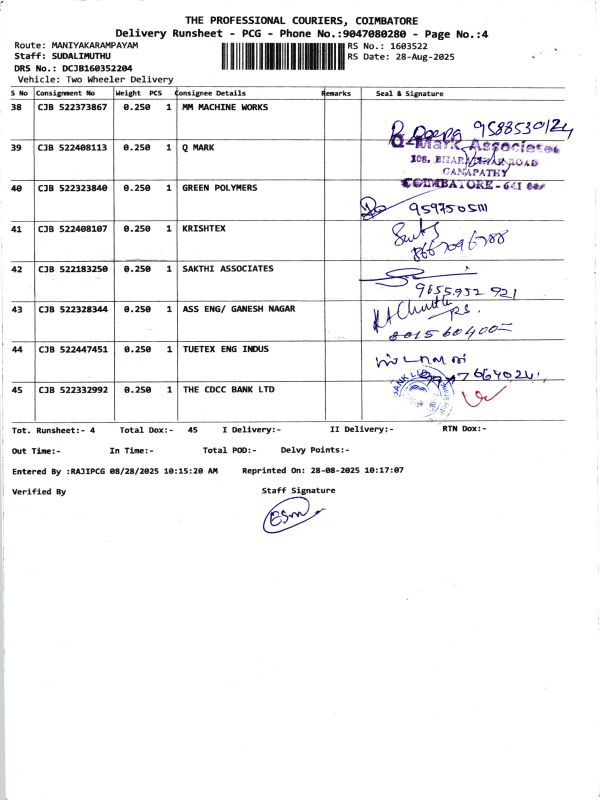 THE PROFESSIONAL COURIERS, COIMBATORE
Delivery Runsheet - PCG - Phone No.:9047080280 - Page No.:4
Route: MANIYAKARAMPAYAM RS No.: 1603522
Staff: SUDALIMUTHU RS Date: 28-Aug-2025
DRS No.: DCJB160352204
Vehicle: Two Wheeler Delivery
S No Consignment No Weight PCS Consignee Details Remarks Seal & Signature
38 CJB 522373867 0.250 1 MM MACHINE WORKS
R Deepa 9588530124
39 CJB 522408113 0.250 1 Q MARK
Q-Mark Associates
108, BHARATHIAR ROAD
GANAPATHY
COIMBATORE - 641
40 CJB 522323840 0.250 1 GREEN POLYMERS
9597505111
41 CJB 522408107 0.250 1 KRISHTEX
8667096788
42 CJB 522183250 0.250 1 SAKTHI ASSOCIATES
9655952 921
43 CJB 522328344 0.250 1 ASS ENG/ GANESH NAGAR
44 CJB 522447451 0.250 1 TUETEX ENG INDUS
45 CJB 522332992 0.250 1 THE CDCC BANK LTD
BANK LTD
Tot. Runsheet:- 4 Total Dox:- 45 I Delivery:- II Delivery:- RTN Dox:-
Out Time:- In Time:- Total POD:- Delvy Points:-
Entered By :RAJIPCG 08/28/2025 10:15:20 AM Reprinted On: 28-08-2025 10:17:07
Verified By Staff Signature
ESM